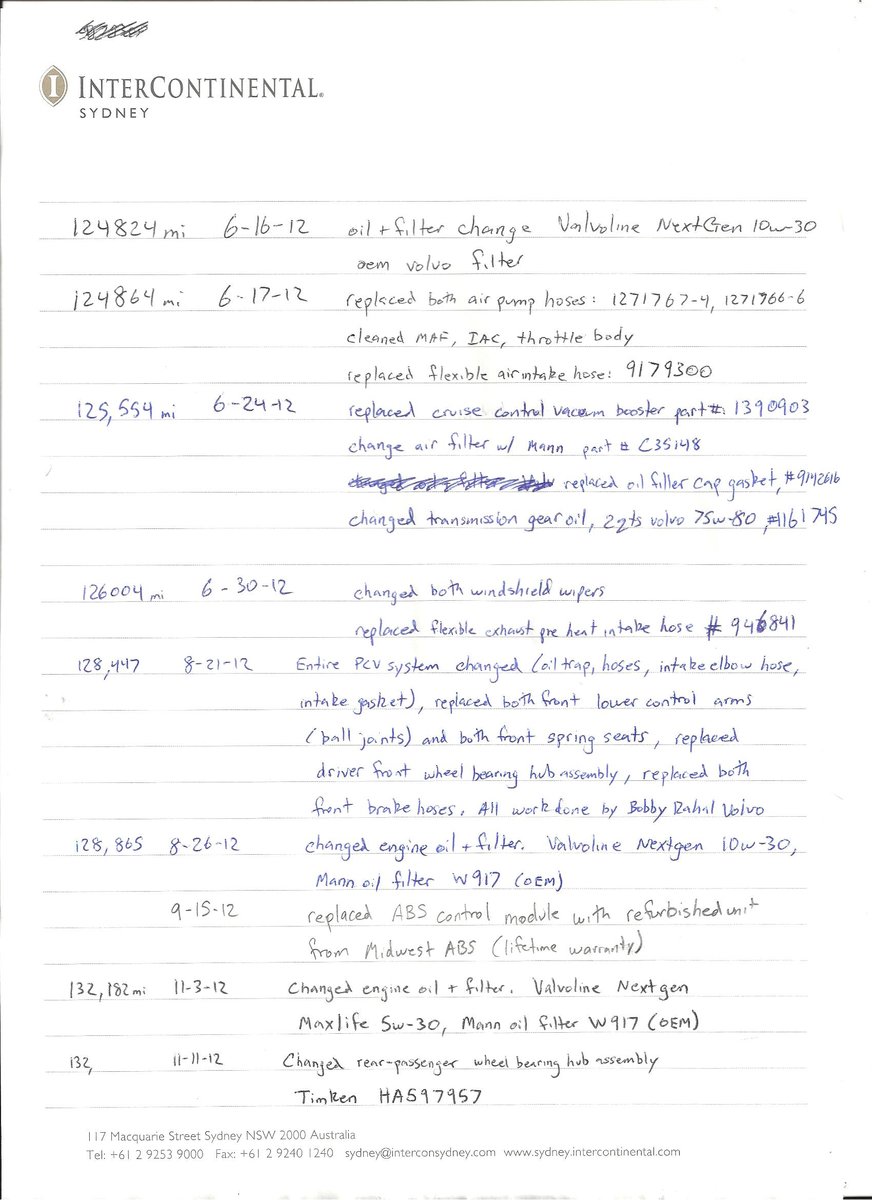 INTERCONTINENTAL®
SYDNEY
124824 mi 6-16-12 oil + filter change Valvoline NextGen 10w-30
oem volvo filter
124864 mi 6-17-12 replaced both air pump hoses: 1271767-4, 1271966-6
cleaned MAF, IAC, throttle body
replaced flexible air intake hose: 9179300
125,554 mi 6-24-12 replaced cruise control vacuum booster part #: 1390903
change air filter w/ Mann part # C35148
replaced oil filler cap gasket, #9142616
changed transmission gear oil, 2qts volvo 75w-80, #1161745
126004 mi 6-30-12 changed both windshield wipers
replaced flexible exhaust pre heat intake hose # 946841
128,447 8-21-12 Entire PCV system changed (oil trap, hoses, intake elbow hose,
intake gasket), replaced both front lower control arms
(ball joints) and both front spring seats, replaced
driver front wheel bearing hub assembly, replaced both
front brake hoses. All work done by Bobby Rahal Volvo
128,865 8-26-12 changed engine oil + filter. Valvoline Nextgen 10w-30,
Mann oil filter W917 (OEM)
9-15-12 replaced ABS control module with refurbished unit
from Midwest ABS (lifetime warranty)
132,182 mi 11-3-12 Changed engine oil + filter. Valvoline Nextgen
Maxlife 5w-30, Mann oil filter W917 (OEM)
132, 11-11-12 Changed rear-passenger wheel bearing hub assembly
Timken HA597957
117 Macquarie Street Sydney NSW 2000 Australia
Tel: +61 2 9253 9000 Fax: +61 2 9240 1240 sydney@interconsydney.com www.sydney.intercontinental.com